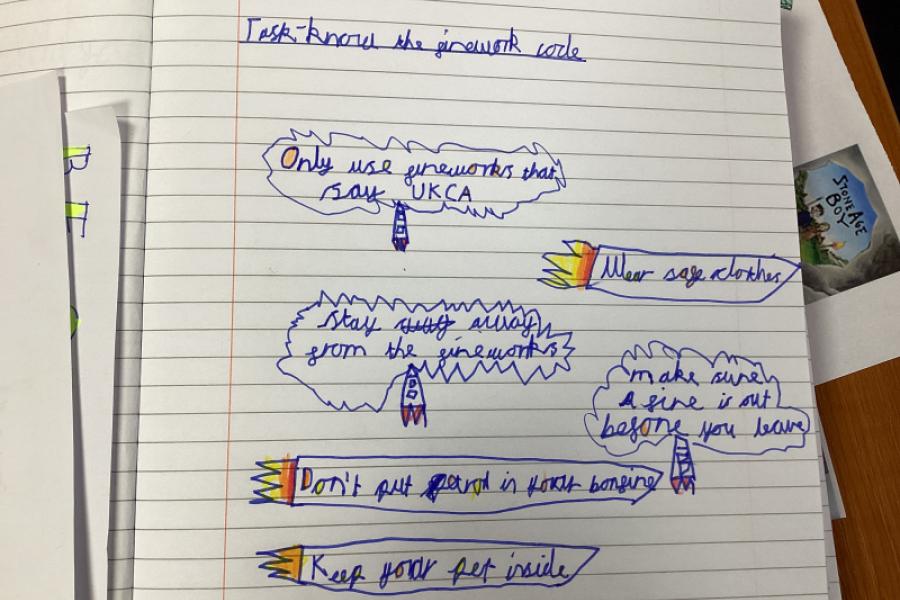 Task-know the firework code
Only use fireworks that
say UKCA
Wear safe clothes
stay away
from the fireworks
make sure
a fire is out
before you leave
Don't put petrol in your bonfire
Keep your pet inside
STONE AGE
BOY